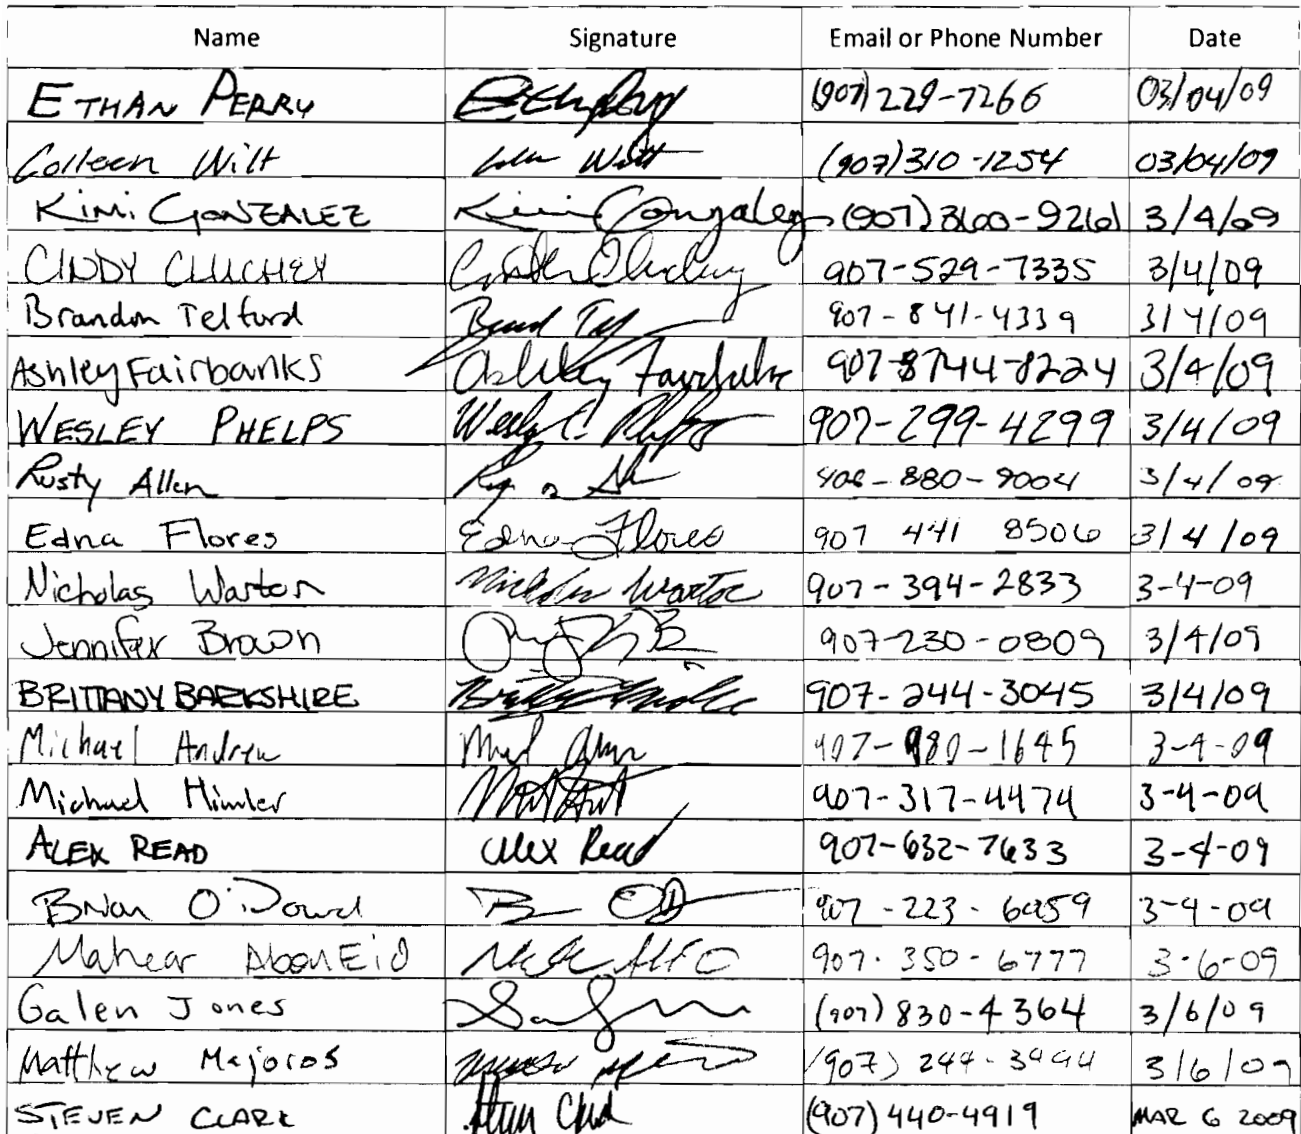 Name Signature Email or Phone Number Date
ETHAN PERRY (907) 229-7266 03/04/09
Colleen Wilt Wilt (907) 310-1254 03/04/09
KIMI GONZALEZ Kimi Gonzalez (907) 360-9261 3/4/09
CINDY CLUCHEY 907-529-7335 3/4/09
Brandon Telford 907-841-4339 3/4/09
Ashley Fairbanks Ashley Fairbanks 3/4/09
WESLEY PHELPS Wesley C. Phelps 907-299-4299 3/4/09
Rusty Allen 3/4/09
Edna Flores Edna Flores 907 441 8506 3/4/09
Nicholas Warton Nicholas Warton 907-394-2833 3-4-09
Jennifer Brown 907-230-0809 3/4/09
BRITTANY BARKSHIRE 907-244-3045 3/4/09
Michael Andrew 3-4-09
Michael Himler 907-317-4474 3-4-09
ALEX READ Alex Read 907-632-7633 3-4-09
Brian O'Dowd 3-4-09
Mahear AbouEid 907-350-6777 3-6-09
Galen Jones (907) 830-4364 3/6/09
Matthew Majoros (907) 244-3494 3/6/09
STEVEN CLARK (907) 440-4919 MAR 6 2009